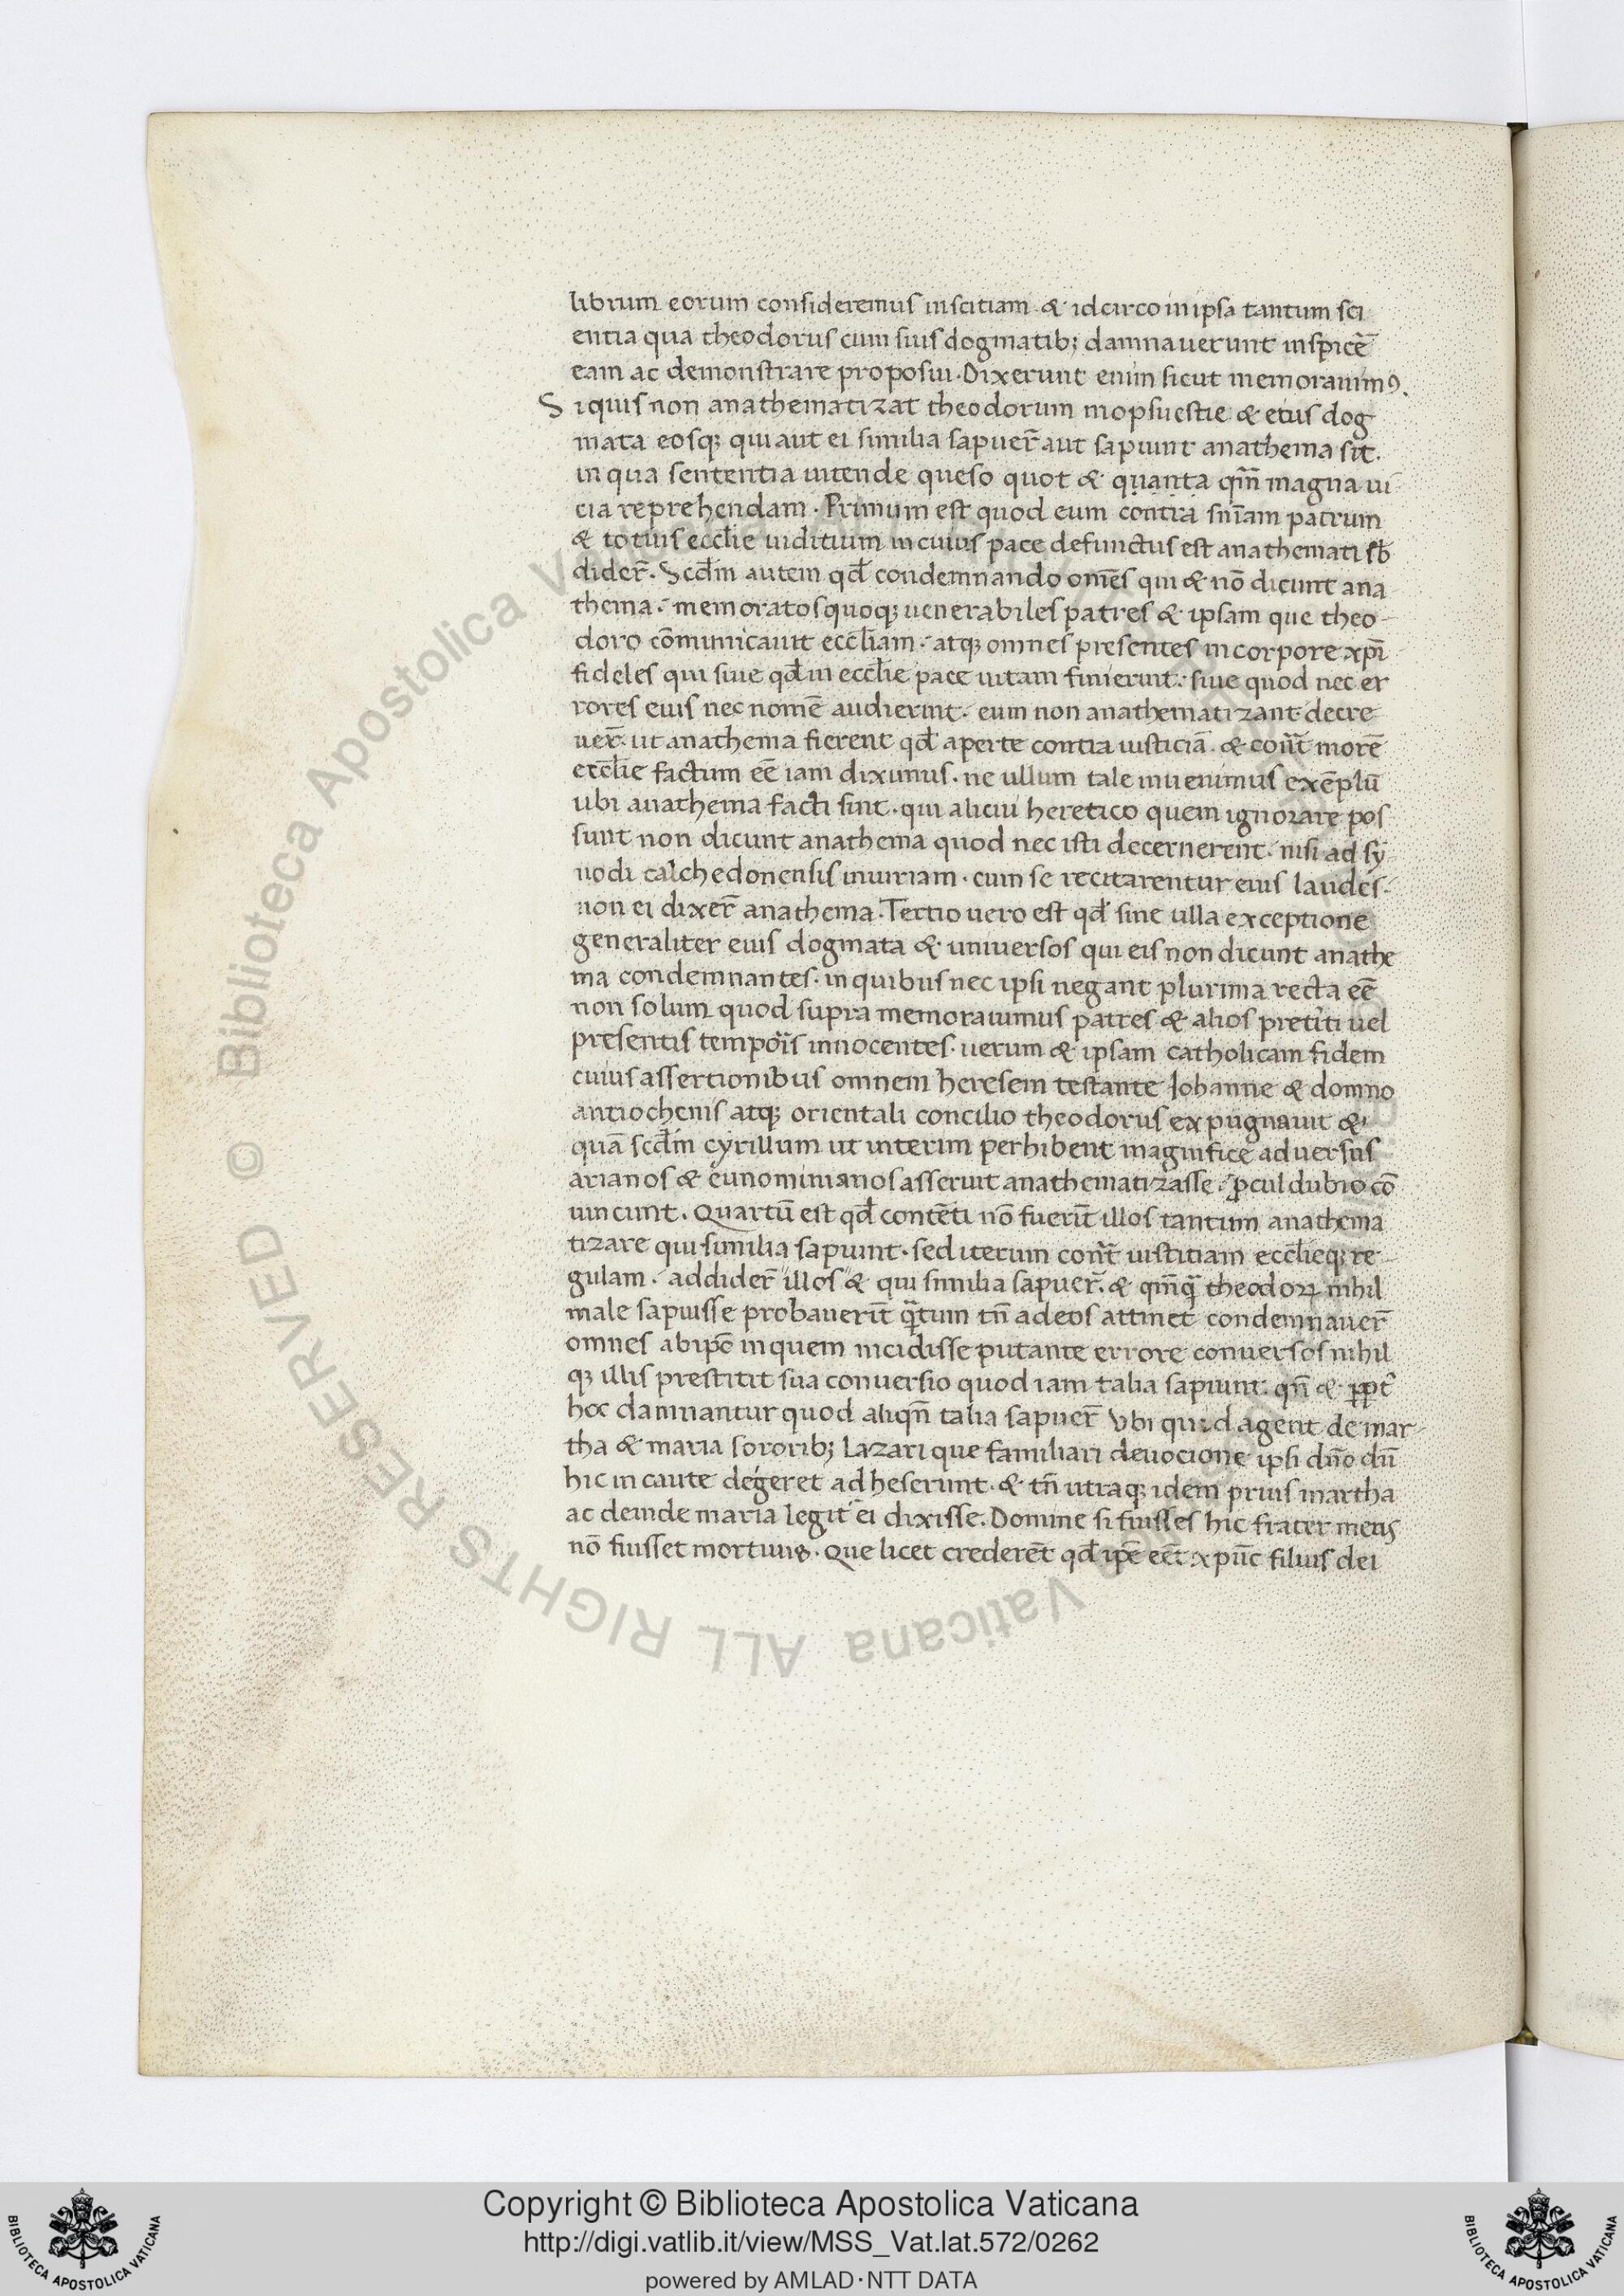 librum eorum consideremus inscitiam & idcirco in ipsa tantum sci
entia qua theodorus cum suis dogmatib; damnauerunt inspicē
eam ac demonstrare proposui. Dixerunt enim sicut memorauimꝰ.
Siquis non anathematizat theodorum mopsuestie & eius dog
mata eosqȝ qui aut ei similia sapuer̄ aut sapiunt anathema sit.
in qua sententia intende queso quot & quanta qm̄ magna ui
cia reprehendam. Primum est quod eum contra sn̄iam patrum
& totius eccl̄ie iuditium in cuius pace defunctus est anathemati sb̄
dider̄. Scd̄m autem qd̄ condemnando om̄es qui & nō dicunt ana
thema. memoratos quoqȝ uenerabiles patres & ipsam que theo
doro cōmunicauit eccl̄iam. atqȝ omnes presentes in corpore xp̄i
fideles qui siue qd̄ in eccl̄ie pace uitam finierint. siue quod nec er
rores eius nec nomē audierint. eum non anathematizant decre
uer̄. ut anathema fierent qd̄ aperte contra iusticiā & cont̄ morē
eccl̄ie factum eē iam diximus. ne ullum tale inuenimus exēplū
ubi anathema facti sint. qui alicui heretico quem ignorare pos
sunt non dicunt anathema quod nec isti decernerent. nisi ad sy
nodi calchedonensis iniuriam. cum se recitarentur eius laudes.
non ei dixer̄ anathema. Tertio uero est qd̄ sine ulla exceptione
generaliter eius dogmata & uniuersos qui eis non dicunt anathe
ma condemnantes. in quibus nec ipsi negant plurima recta eē
non solum quod supra memorauimus patres & alios pret̄iti uel
presentis tempōis innocentes. uerum & ipsam catholicam fidem
cuius assertionibus omnem heresem testante Iohanne & domno
antiochenis atqȝ orientali concilio theodorus expugnauit &
quā scd̄m cyrillum ut interim perhibent magnifice aduersus
arianos & eunominianos asseruit anathematizasse. ꝓcul dubio cō
uincunt. Quartū est qd̄ contēti nō fuerīt illos tantum anathema
tizare qui similia sapiunt. sed iterum cont̄ iustitiam eccl̄ieqȝ re
gulam. addider̄ illos & qui similia sapuer̄. & qm̄q̄ theodoꝝ nihil
male sapuisse probauerīt q̄tum tn̄ ad eos attinet condemnauer̄
omnes ab ip̄o in quem incidisse putante errore conuersos nihil
qȝ illis prestitit sua conuersio quod iam talia sapiunt. qn̄ & ꝓpt̄
hoc damnantur quod aliqn̄ talia sapuer̄ Vbi quid agent de mar
tha & maria sororib; lazari que familiari deuocione ipsi dn̄o dū
hic in caute degeret adheserunt. & tn̄ utraqȝ idem prius martha
ac deinde maria legit̄ ei dixisse. Domine si fuisses hic frater meus
nō fuisset mortuus. Que licet crederēt qd̄ ip̄e eēt xp̄uc filius dei
Copyright © Biblioteca Apostolica Vaticana
http://digi.vatlib.it/view/MSS_Vat.lat.572/0262
powered by AMLAD·NTT DATA
BIBLIOTECA APOSTOLICA VATICANA
BIBLIOTECA APOSTOLICA VATICANA